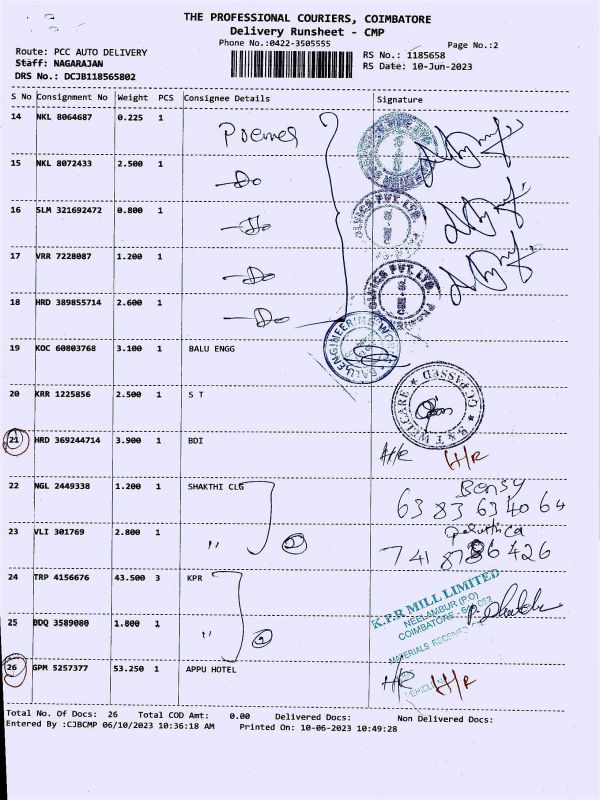 THE PROFESSIONAL COURIERS, COIMBATORE
Delivery Runsheet - CMP
Phone No.:0422-3505555
Page No.:2
Route: PCC AUTO DELIVERY
RS No.: 1185658
Staff: NAGARAJAN
RS Date: 10-Jun-2023
DRS No.: DCJB118565802
S No Consignment No Weight PCS Consignee Details Signature
14 NKL 8064687 0.225 1
15 NKL 8072433 2.500 1 Do
16 SLM 321692472 0.800 1 Do
17 VRR 7228087 1.200 1 Do
18 HRD 389855714 2.600 1 Do
19 KOC 60803768 3.100 1 BALU ENGG
20 KRR 1225856 2.500 1 S T
21 HRD 369244714 3.900 1 BDI H/R H/R
22 NGL 2449338 1.200 1 SHAKTHI CLG
63 83 63 40 64
23 VLI 301769 2.800 1 ,, 2
24 TRP 4156676 43.500 3 KPR
K.P.R MILL LIMITED
NEELAMBUR (P.O)
COIMBATORE
MATERIALS RECEIVED
25 BDQ 3589080 1.800 1 ,, 2
26 GPM 5257377 53.250 1 APPU HOTEL H/R H/R
Total No. Of Docs: 26 Total COD Amt: 0.00 Delivered Docs: Non Delivered Docs:
Entered By :CJBCMP 06/10/2023 10:36:18 AM Printed On: 10-06-2023 10:49:28